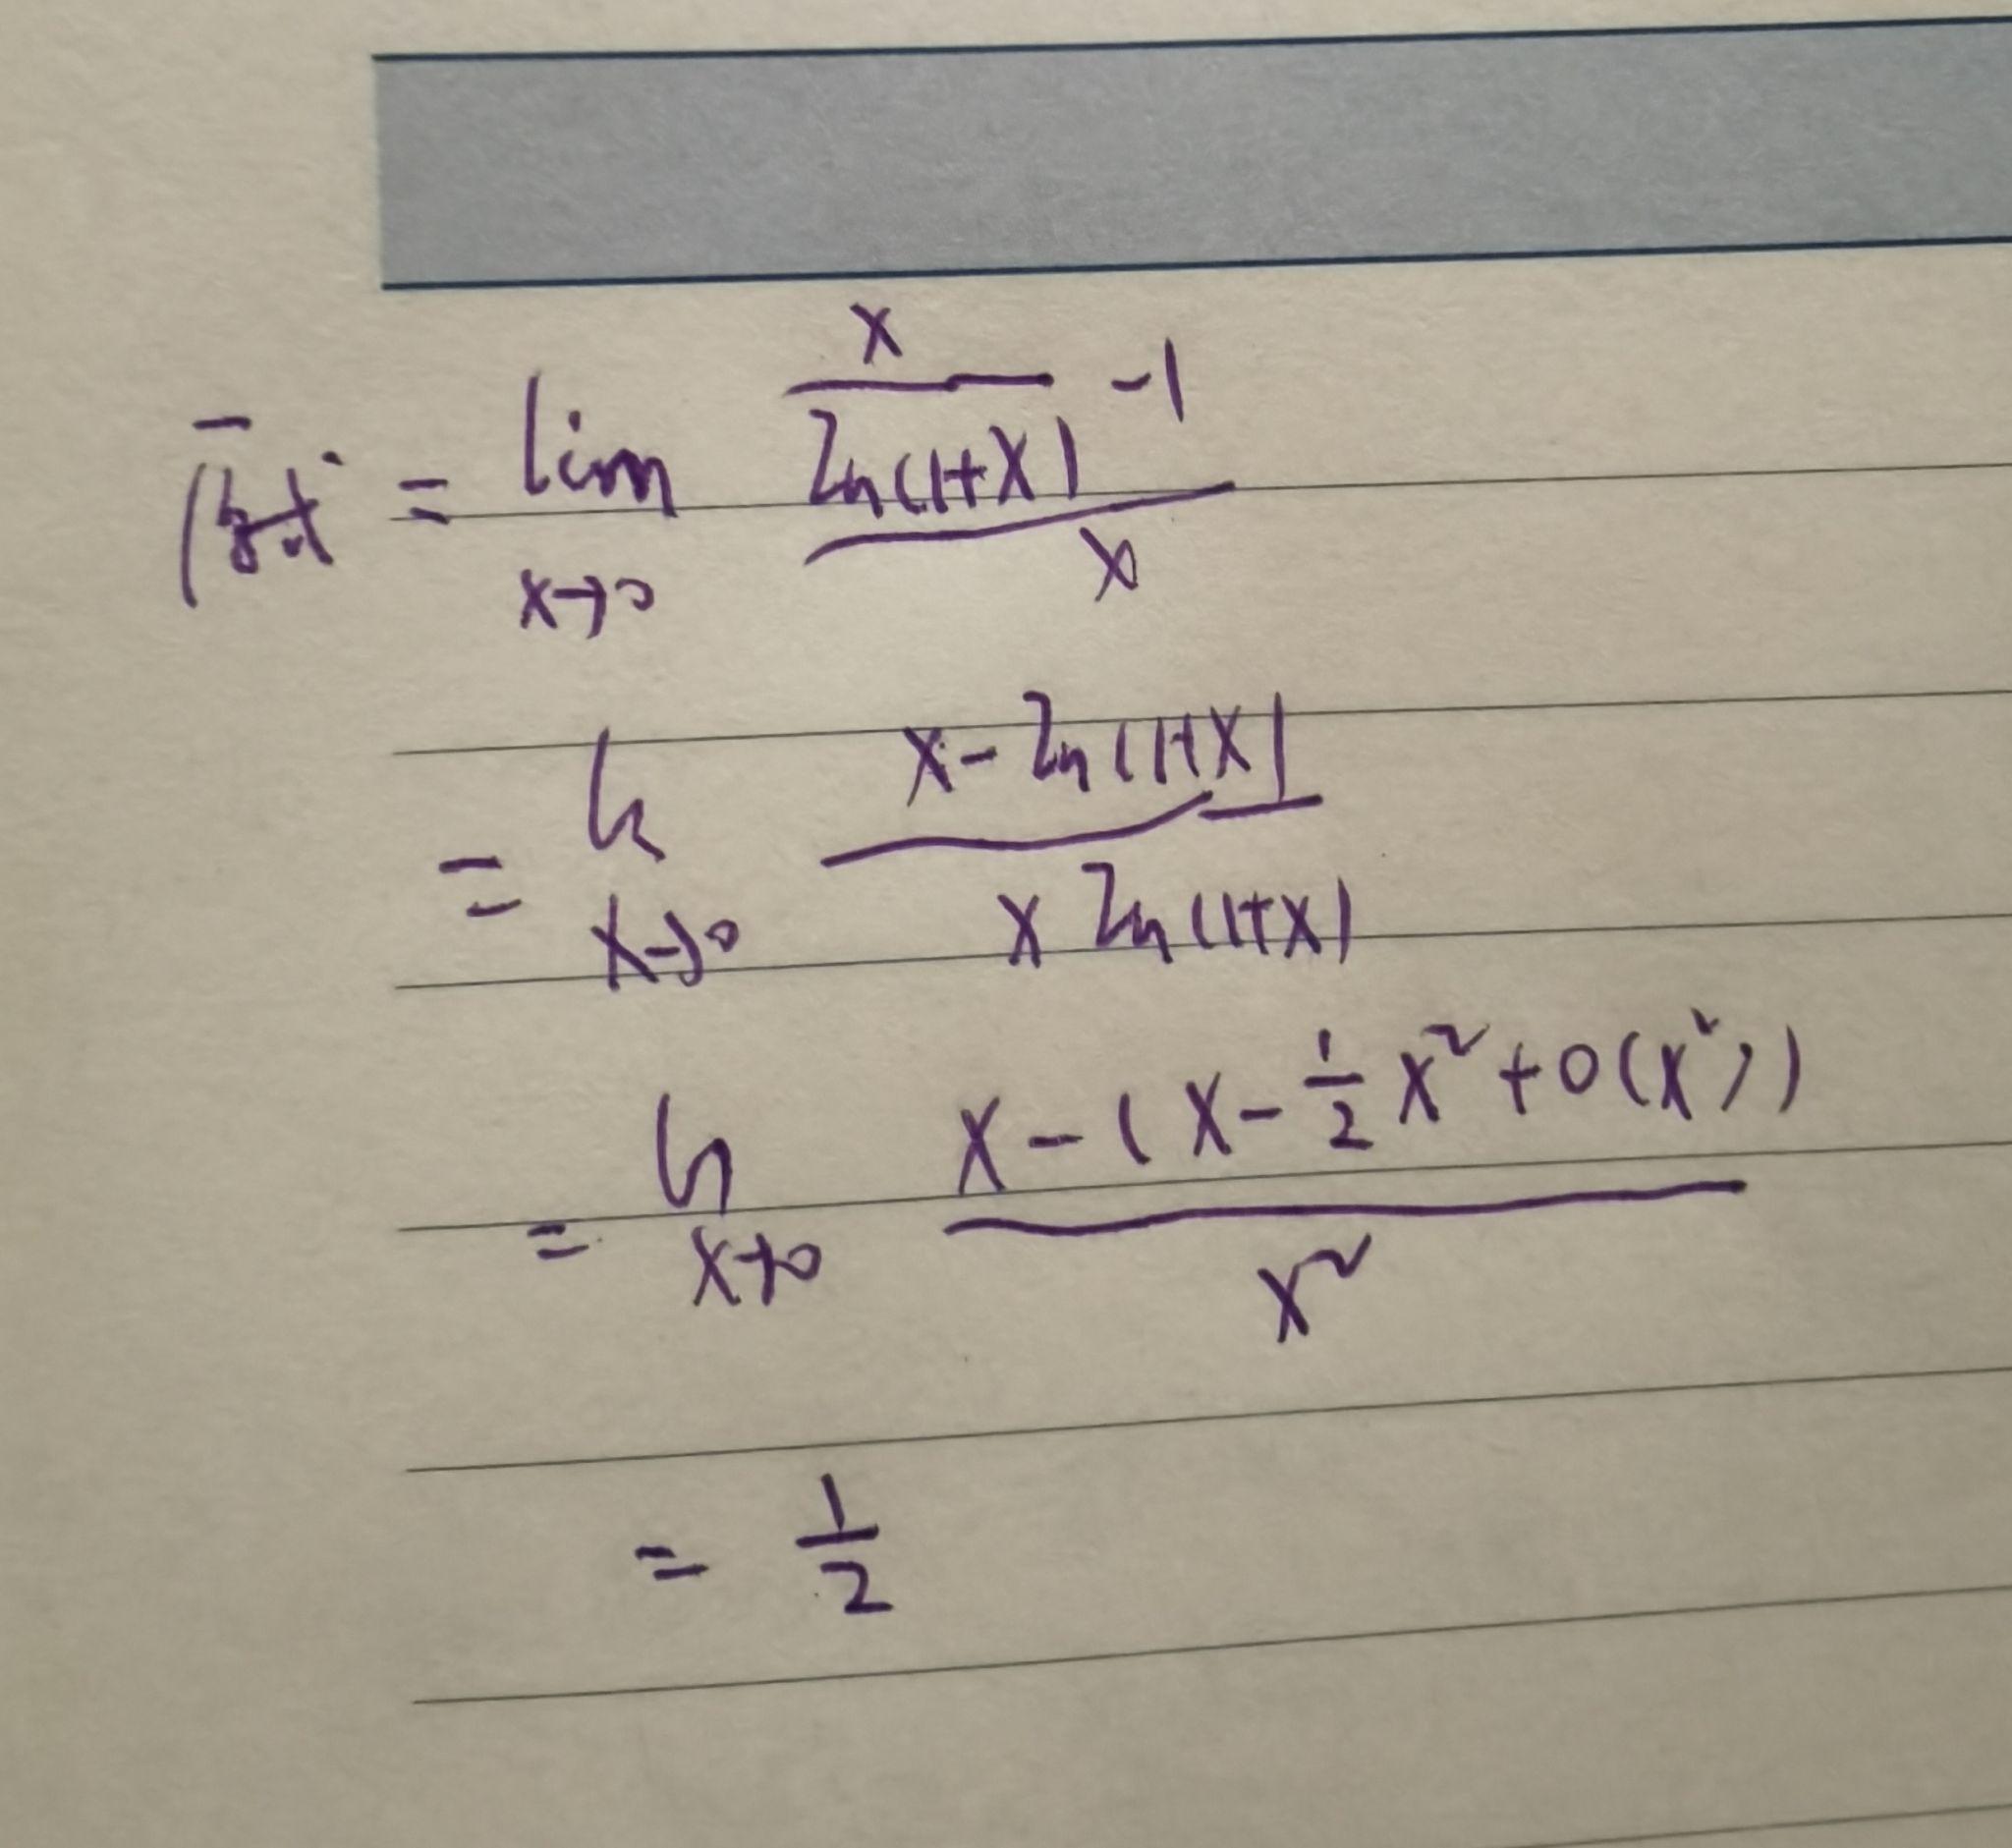 原式 = lim x→0 (x/ln(1+x) -1)/x
= lim x→0 (x - ln(1+x))/(x ln(1+x))
= lim x→0 (x - (x - 1/2 x² + o(x²)))/x²
= 1/2